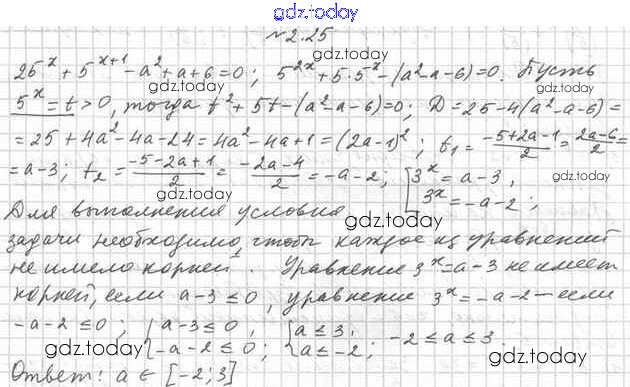 gdz.today
№2.25
gdz.today
25^x + 5^{x+1} - a^2 + a + 6 = 0; 5^{2x} + 5·5^x - (a^2 - a - 6) = 0. Пусть
gdz.today
5^x = t > 0, тогда t^2 + 5t - (a^2 - a - 6) = 0; D = 25 - 4(a^2 - a - 6) =
gdz.today
= 25 + 4a^2 - 4a - 24 = 4a^2 - 4a + 1 = (2a - 1)^2; t_1 = \frac{-5+2a-1}{2} = \frac{2a-6}{2} =
= a - 3; t_2 = \frac{-5-2a+1}{2} = \frac{-2a-4}{2} = -a - 2; [3^x = a - 3,
gdz.today
gdz.today
3^x = -a - 2;
Для выполнения условия
gdz.today
задачи необходимо, чтобы каждое из уравнений
не имело корней. Уравнение 3^x = a - 3 не имеет
gdz.today
корней, если a - 3 ≤ 0, уравнение 3^x = -a - 2 — если
-a - 2 ≤ 0; {a - 3 ≤ 0, {a ≤ 3, -2 ≤ a ≤ 3.
-a - 2 ≤ 0; a ≤ -2;
gdz.today
gdz.today
gdz.today
Ответ: a ∈ [-2; 3]